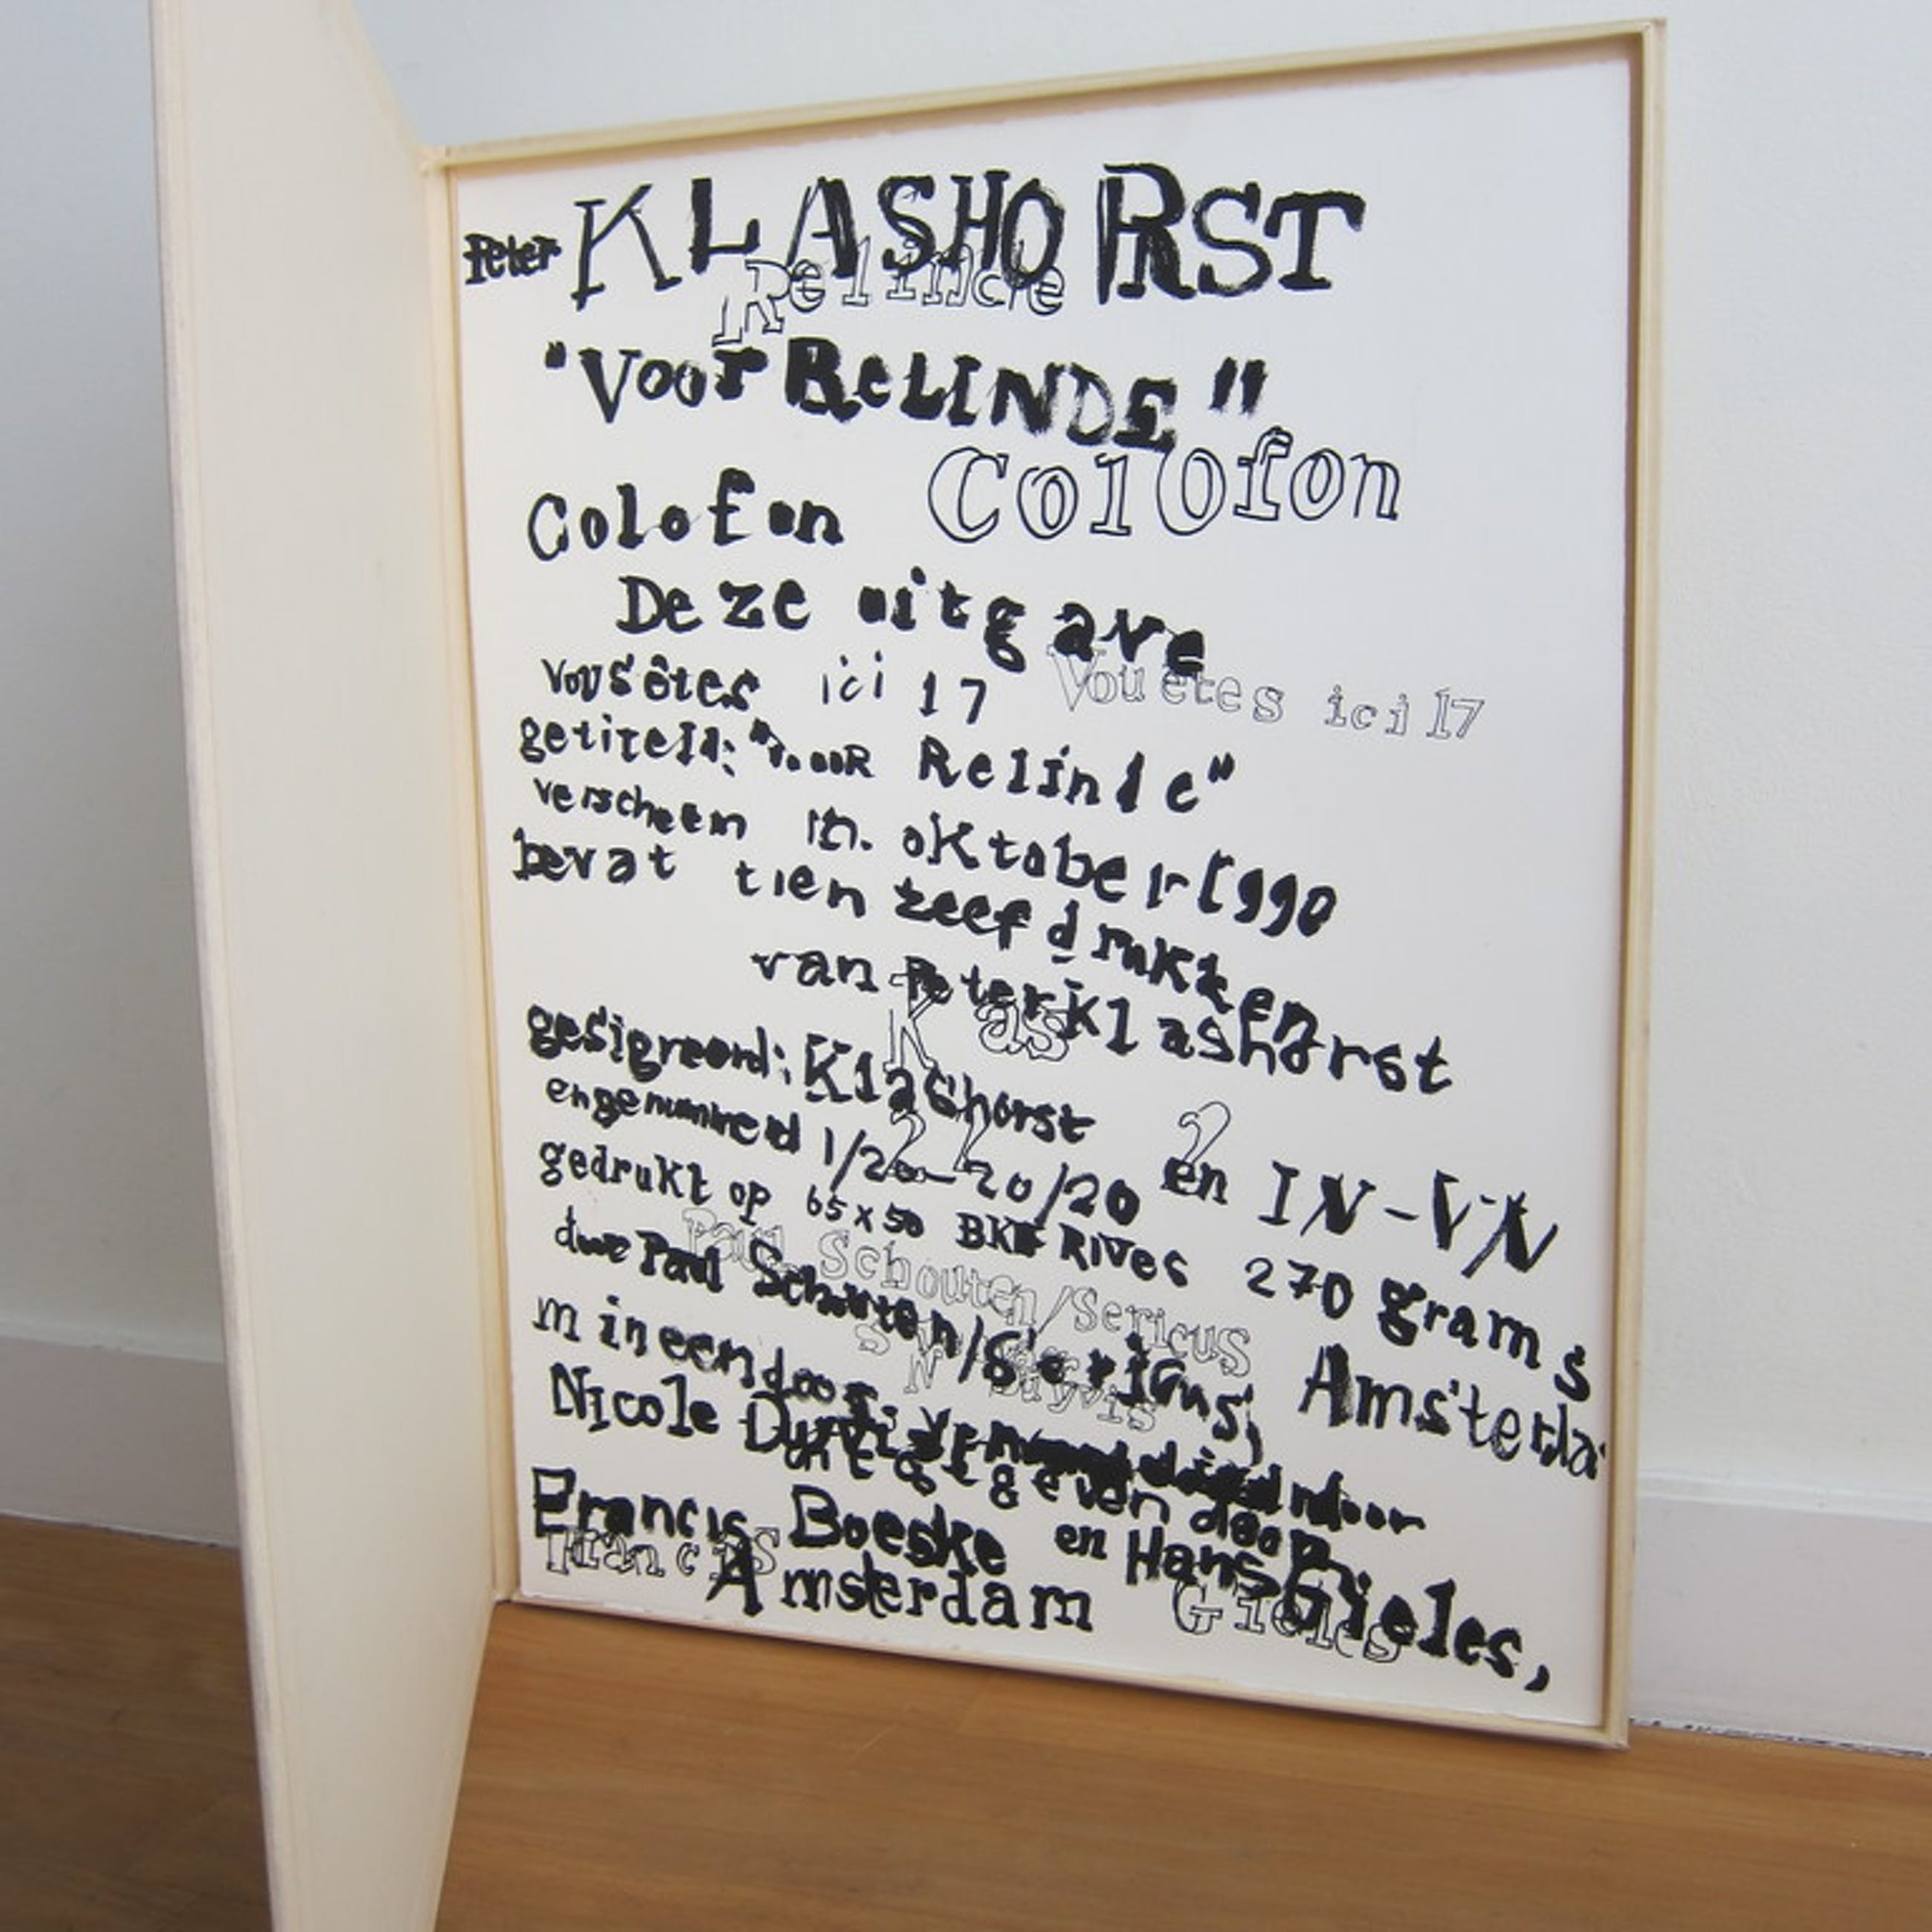 Peter KLASHORST
Relinde
"Voor RELINDE"
Colofon Colofon
Deze uitgave
Vous êtes ici 17 Vou etes ici 17
getiteld: "Voor Relinde"
verscheen in oktober 1990
bevat tien zeefdrukken
van Peter Klashorst
K as
gesigneerd: Klashorst
engenummerd 1/20-20/20 en IN-VN
gedrukt op 65x50 BKF RIVES 270 grams
door Paul Schouten/Sericus, Amsterda
Paul Schouten/Sericus
m in een doos vervaardigd door
Nicole Duyvis
uitgegeven door
Francis Boeske en Hans Gieles,
Francis Gieles
Amsterdam